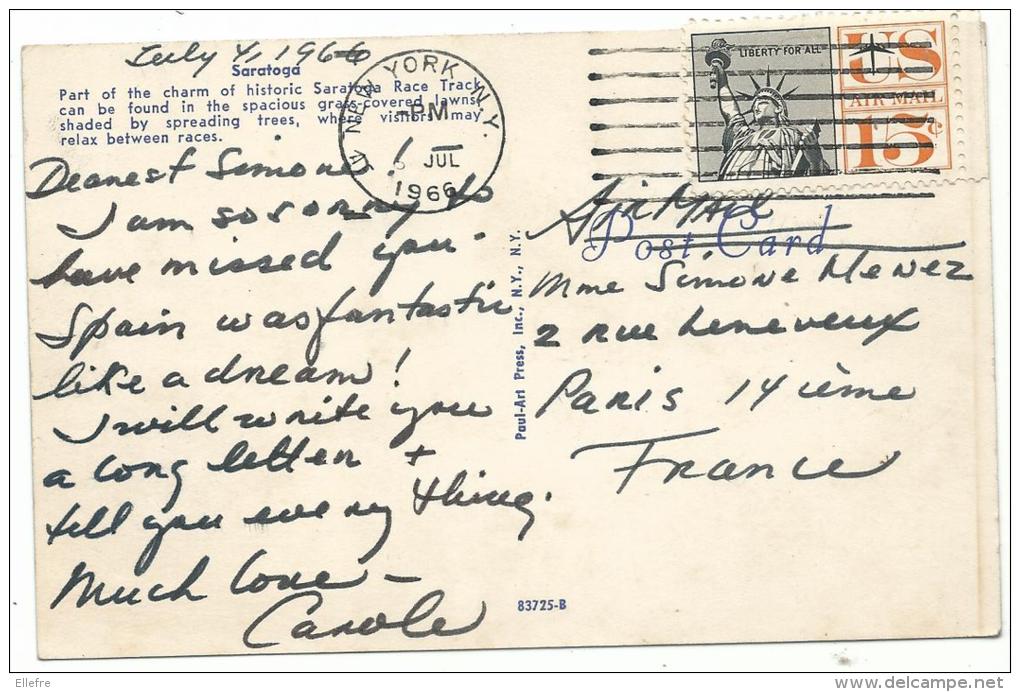 July 4, 1966
Saratoga
Part of the charm of historic Saratoga Race Track
can be found in the spacious grass-covered lawns,
shaded by spreading trees, where visitors may
relax between races.
Dearest Simone!
I am so sorry to
have missed you.
Spain was fantastic
like a dream!
I will write you
a long letter +
tell you every thing.
Much love –
Carole
NEW YORK, N.Y.
PM
JUL
1966
LIBERTY FOR ALL
US
AIR MAIL
15¢
Air Mail
Post Card
Mme Simone Menez
2 rue Leneveux
Paris 14 ième
France
Paul-Art Press, Inc., N.Y., N.Y.
83725-B
Ellefre
www.delcampe.net